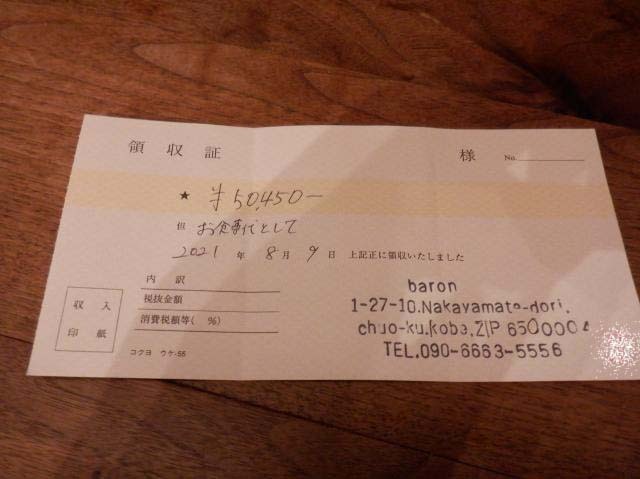 領収証 様 No.
★ ¥50,450-
但 お食事代として
2021 年 8 月 9 日 上記正に領収いたしました
内訳
税抜金額
消費税額等( %)
収入
印紙
コクヨ ウケ-55
baron
1-27-10.Nakayamate-dori.
chuo-ku.koba.ZIP 6500004
TEL.090-6663-5556